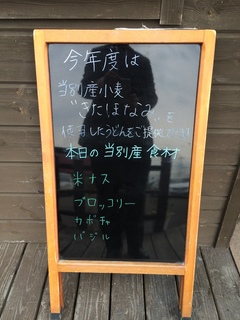 今年度は
当別産小麦
"きたほなみ"を
使用したうどんをご提供
本日の当別産食材
米ナス
ブロッコリー
カボチャ
バジル